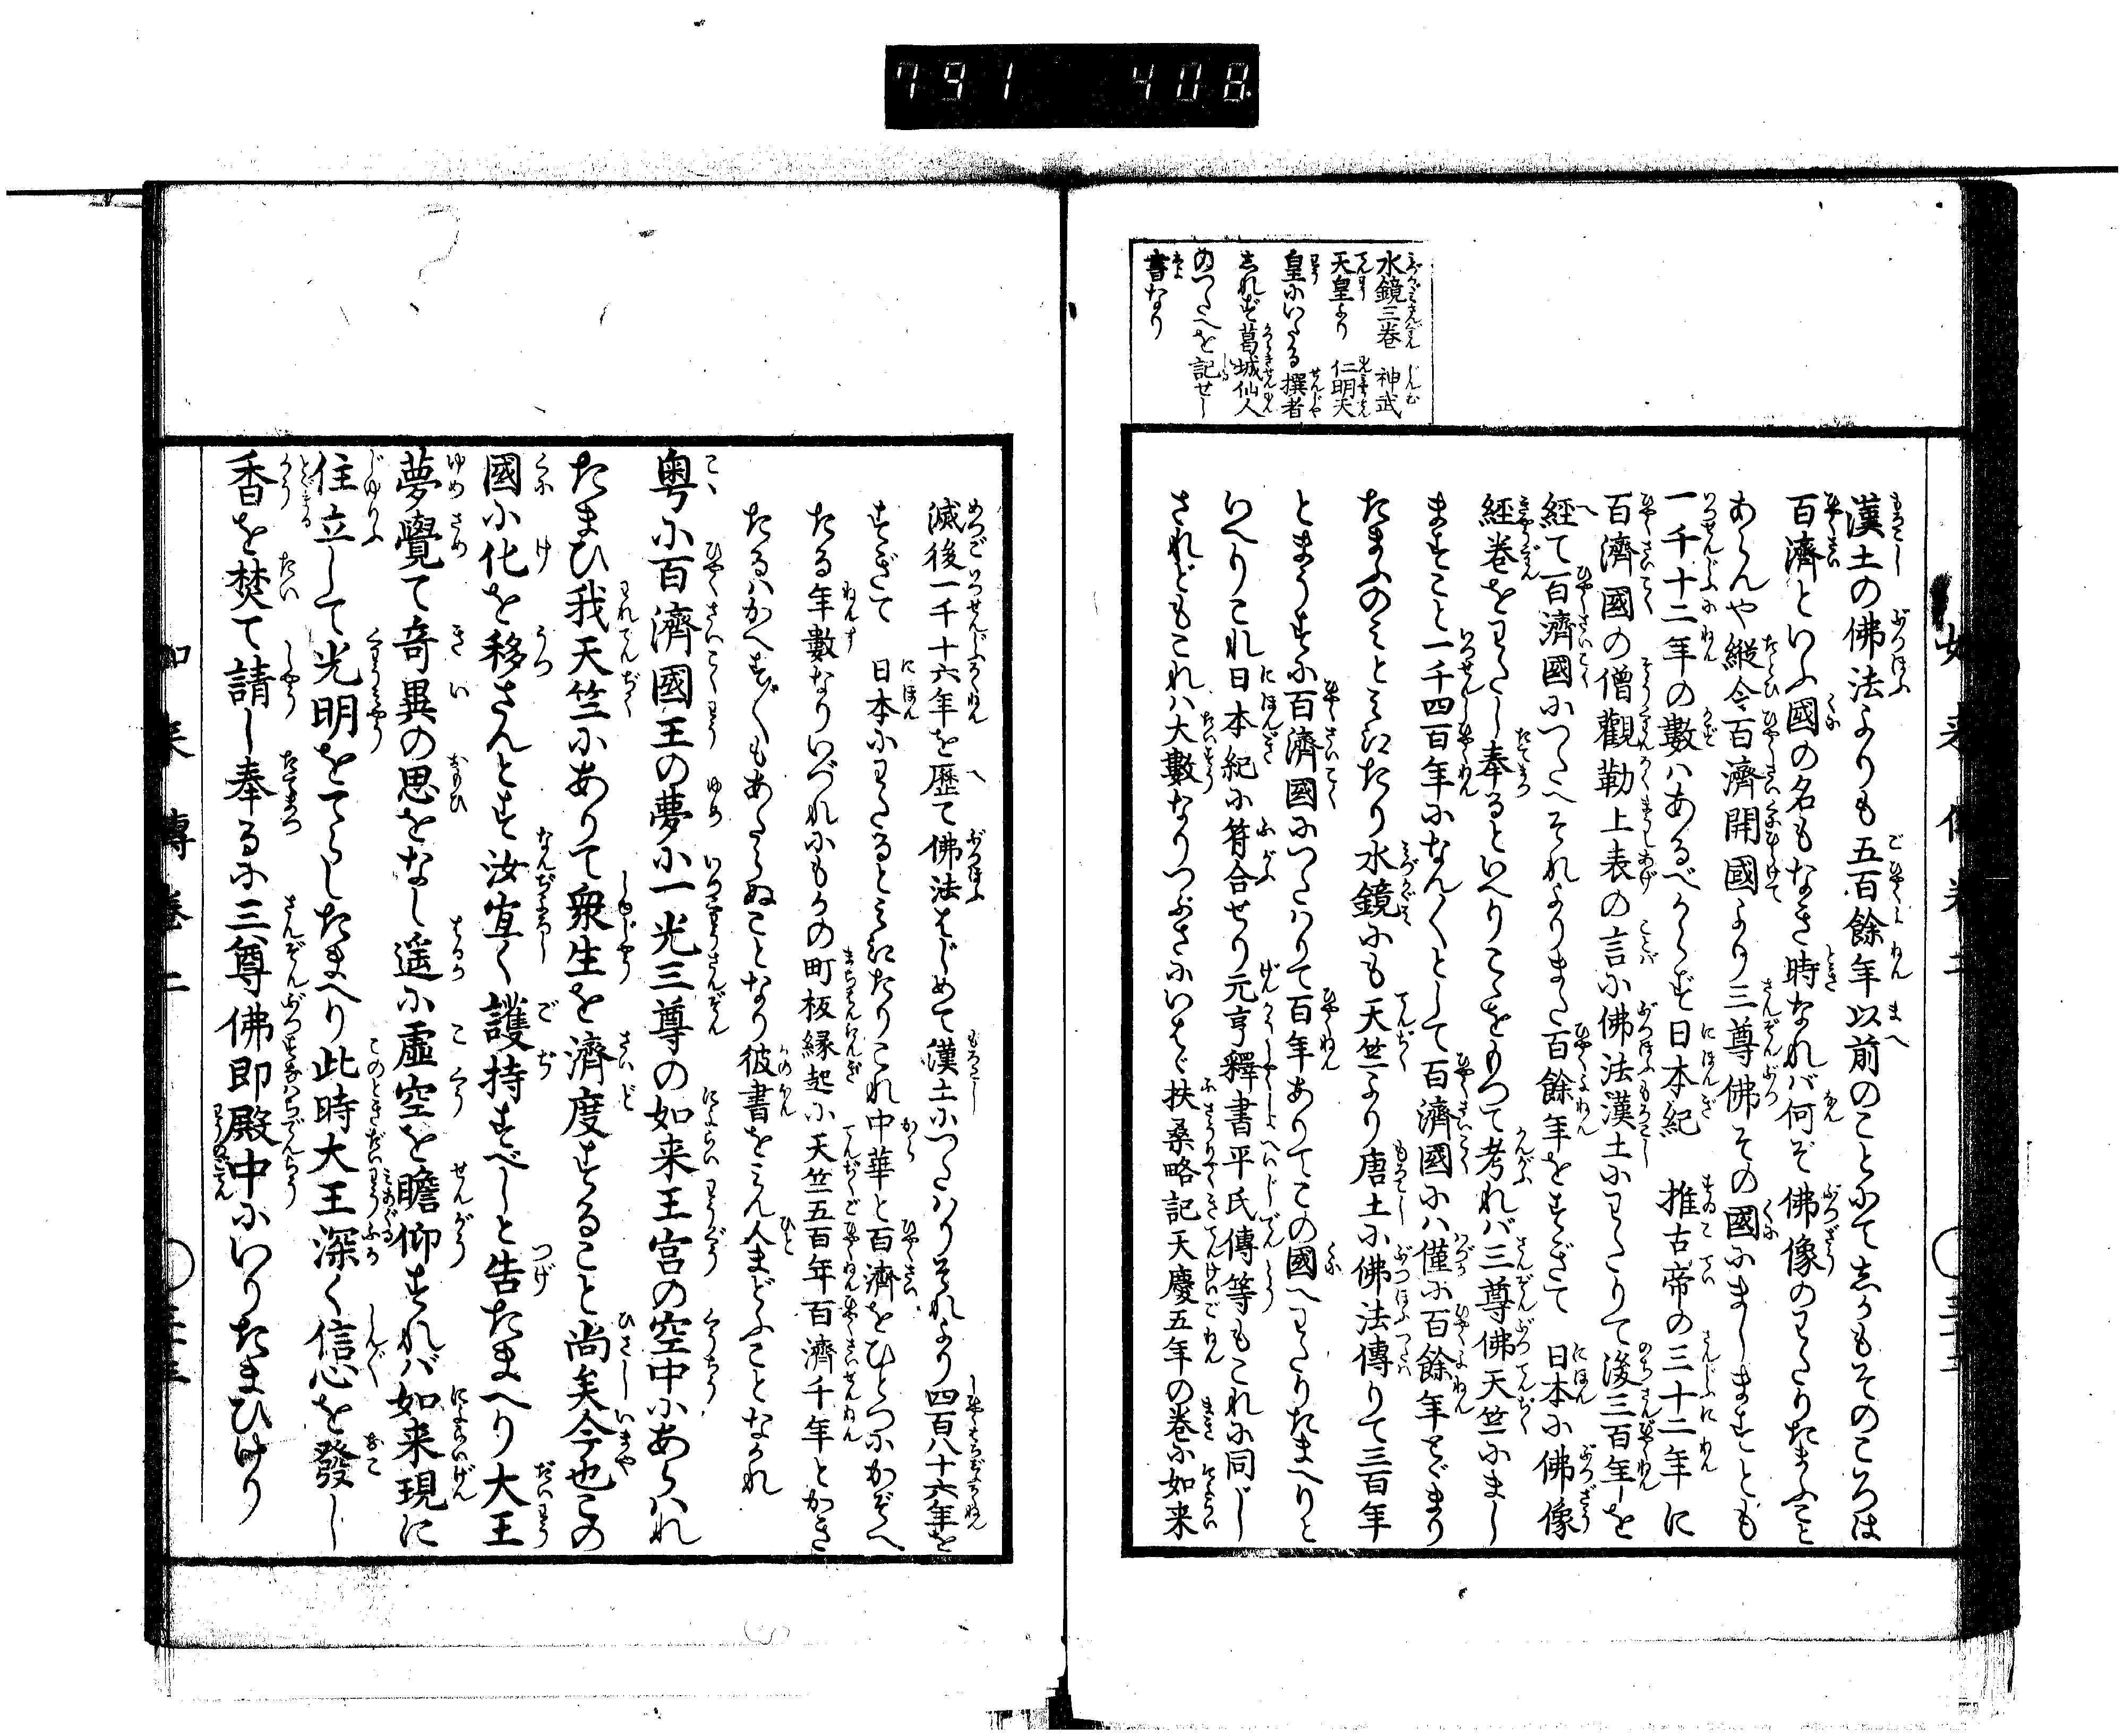 791 408
水鏡三巻 神武
天皇より 仁明天
皇にいたる撰者
しれず葛城仙人
のつたへを記せし
書なり
漢土の佛法よりも五百餘年以前のことにてしかもそのころは
百濟といふ國の名もなき時なれバ何ぞ佛像のわたりたまふこと
あらんや縦令百濟開國より三尊佛その國にましますことも
一千十二年の數ハあるべからず日本紀 推古帝の三十二年に
百濟國の僧觀勒上表の言に佛法漢土にわたりて後三百年を
經て百濟國につたへそれよりまた百餘年をすぎて 日本に佛像
經巻をわたし奉るといへりこゝをもつて考れバ三尊佛天竺にまし
ますこと一千四百年になんなんとして百濟國にハ僅に百餘年とゞまり
たまふのみとみえたり水鏡にも天竺より唐土に佛法傳りて三百年
とまうすに百濟國につたハりて百年ありてこの國へわたりたまへりと
いへりこれ日本紀に符合せり元亨釋書平氏傳等もこれに同じ
されどもこれハ大數なりつぶさにいはゞ扶桑略記天慶五年の巻に如来
滅後一千十六年を歴て佛法はじめて漢土につたハりそれより四百八十六年を
すぎて 日本にわたるとみえたりこれ中華と百濟をひとつにかぞへ
たる年數なりいづれにもかの町板縁起に天竺五百年百濟千年とかき
たるハかへすがへすもあたらぬことなり彼書をみん人まどふことなかれ
粤に百濟國王の夢に一光三尊の如来王宮の空中にあらハれ
たまひ我天竺にありて衆生を濟度すること尚矣今也この
國に化を移さんとす汝宜く護持すべしと告たまへり大王
夢覺て奇異の思をなし遥に虚空を瞻仰すれバ如来現に
住立して光明をてらしたまへり此時大王深く信心を發し
香を焚て請し奉るに三尊佛即殿中にいりたまひけり
如来傳巻二